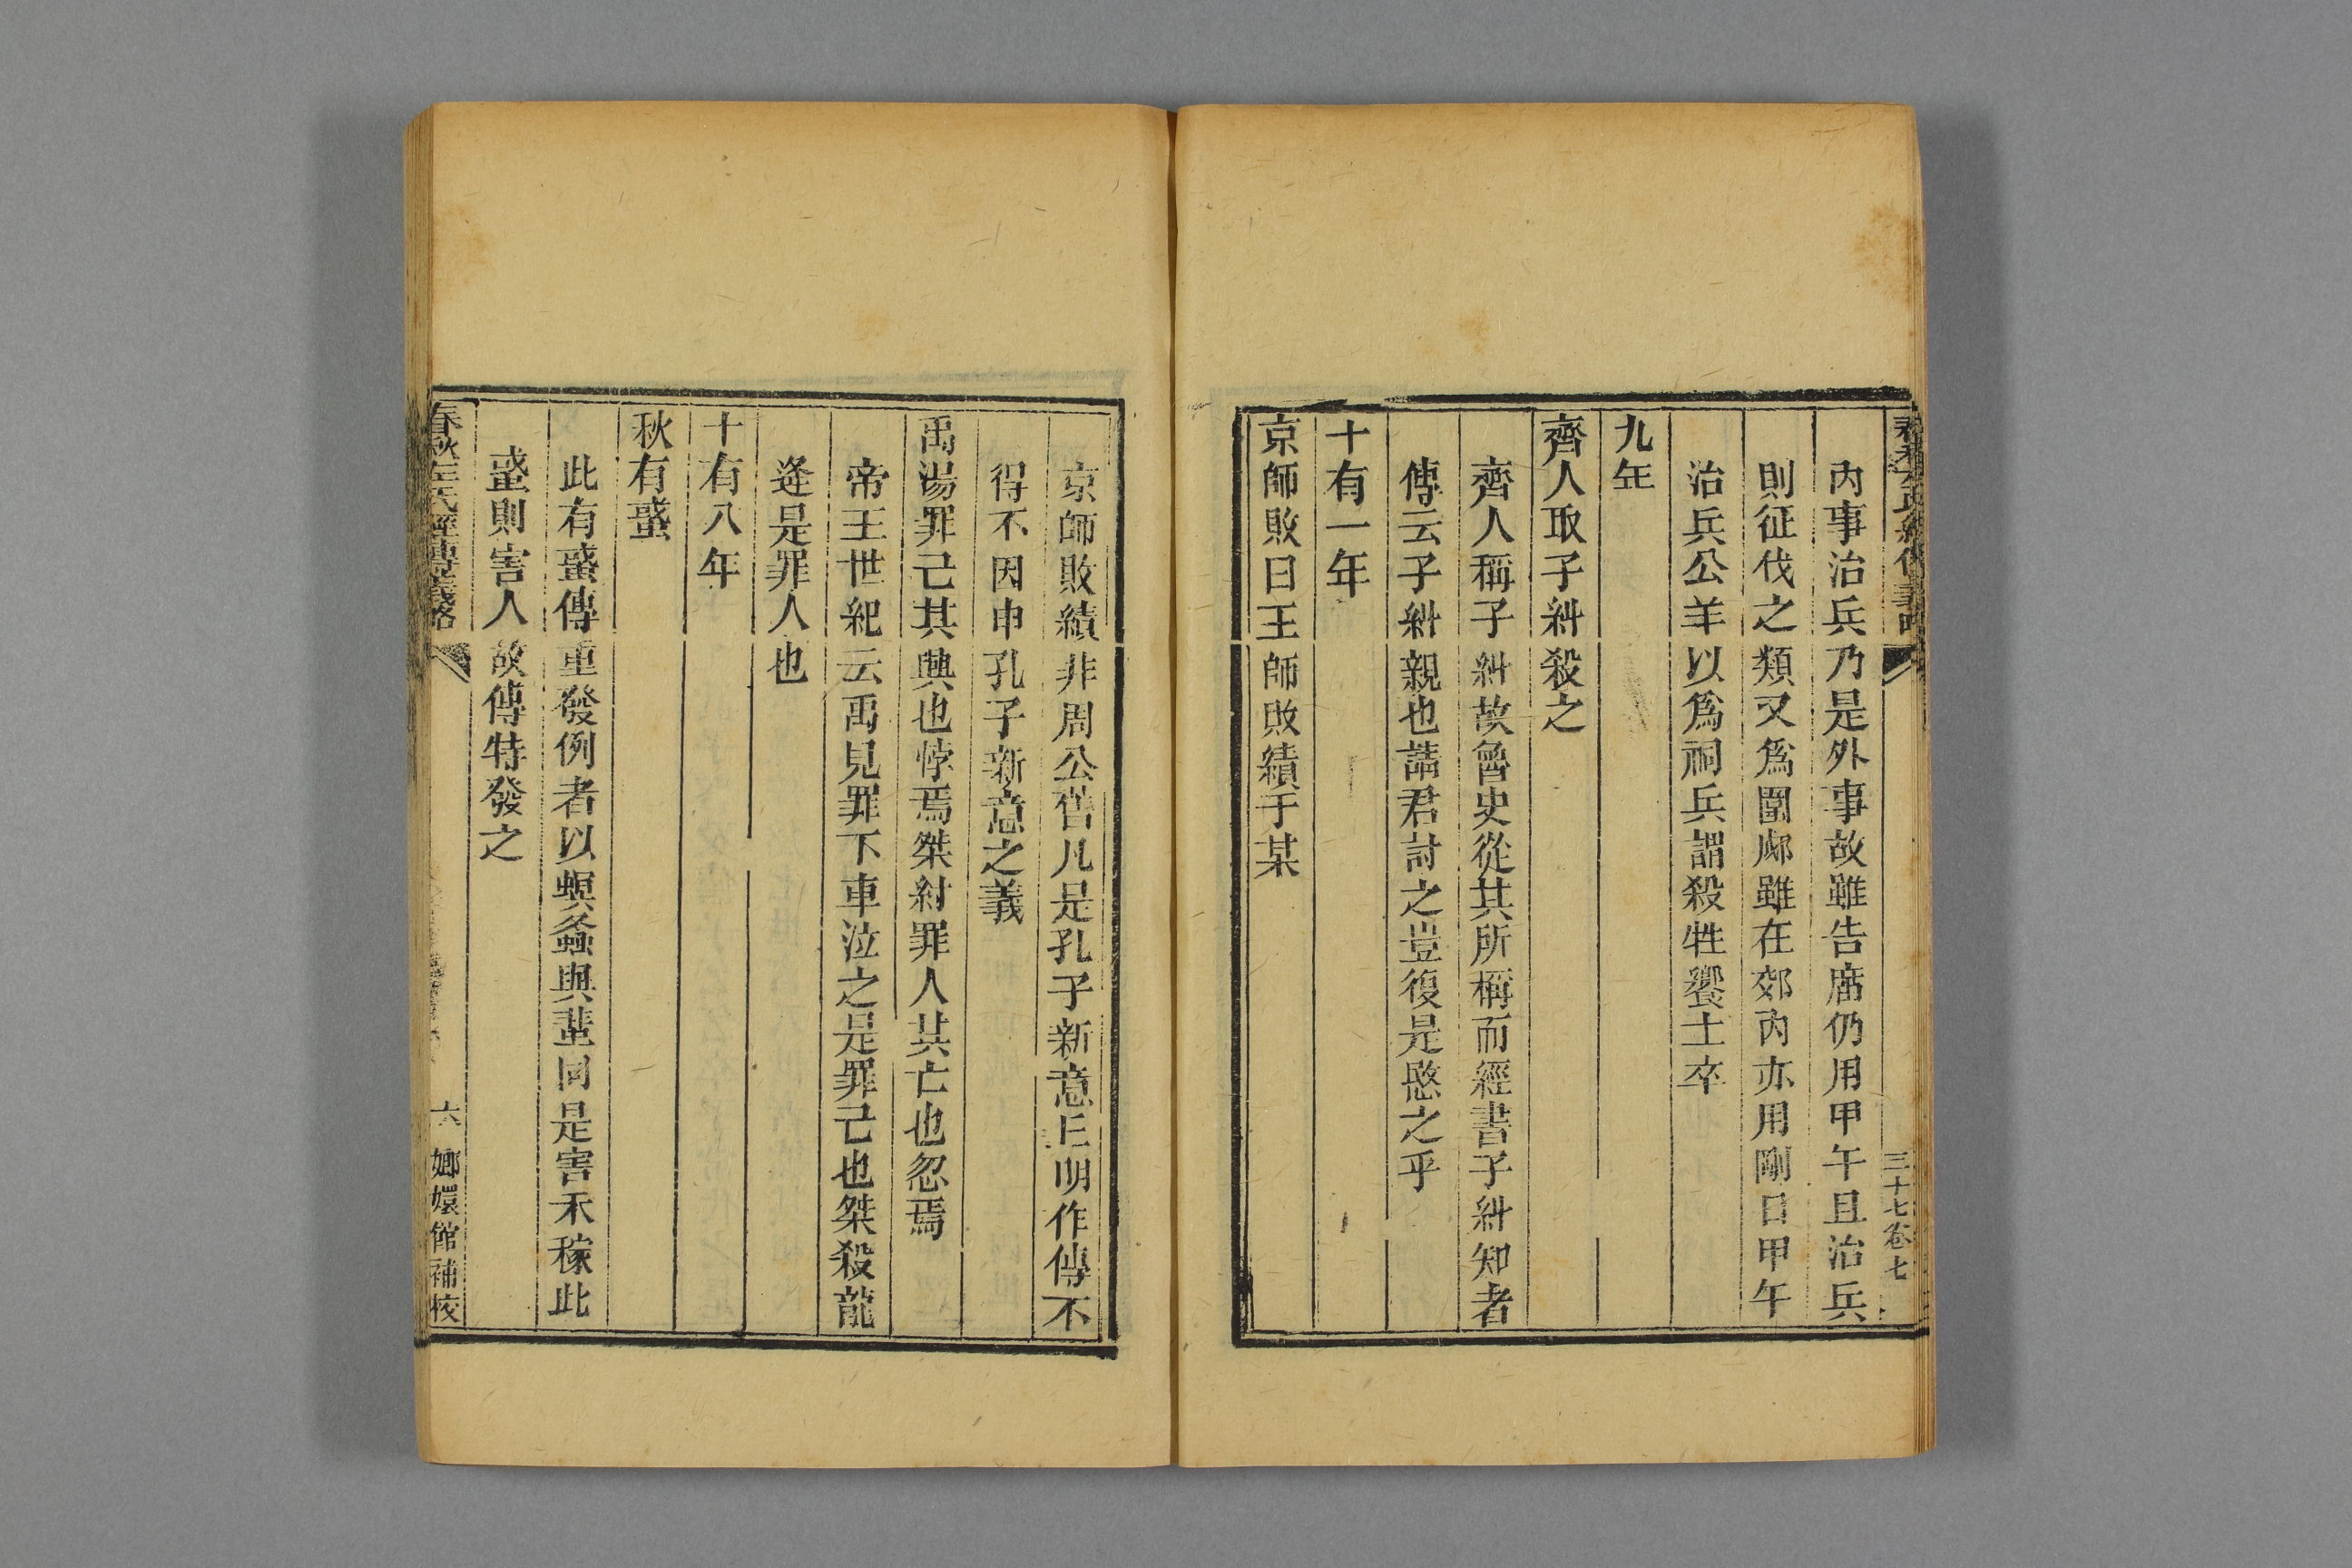 春秋左氏經傳義略
三十七卷七
内事治兵乃是外事故雖告廟仍用甲午且治兵
則征伐之類又爲圍郕雖在郊内亦用剛日甲午
治兵公羊以爲祠兵謂殺牲饗士卒
九年
齊人取子糾殺之
齊人稱子糾故魯史從其所稱而經書子糾知者
傳云子糾親也請君討之豈復是愍之乎
十有一年
京師敗曰王師敗績于某
京師敗績非周公舊凡是孔子新意丘明作傳不
得不因申孔子新意之義
禹湯罪己其興也悖焉桀紂罪人其亡也忽焉
帝王世紀云禹見罪下車泣之是罪己也桀殺龍
逄是罪人也
十有八年
秋有蜮
此有蜮傳重發例者以螟螽與蜚同是害禾稼此
蜮則害人故傳特發之
春秋左氏經傳義略
六 嫏嬛館補校